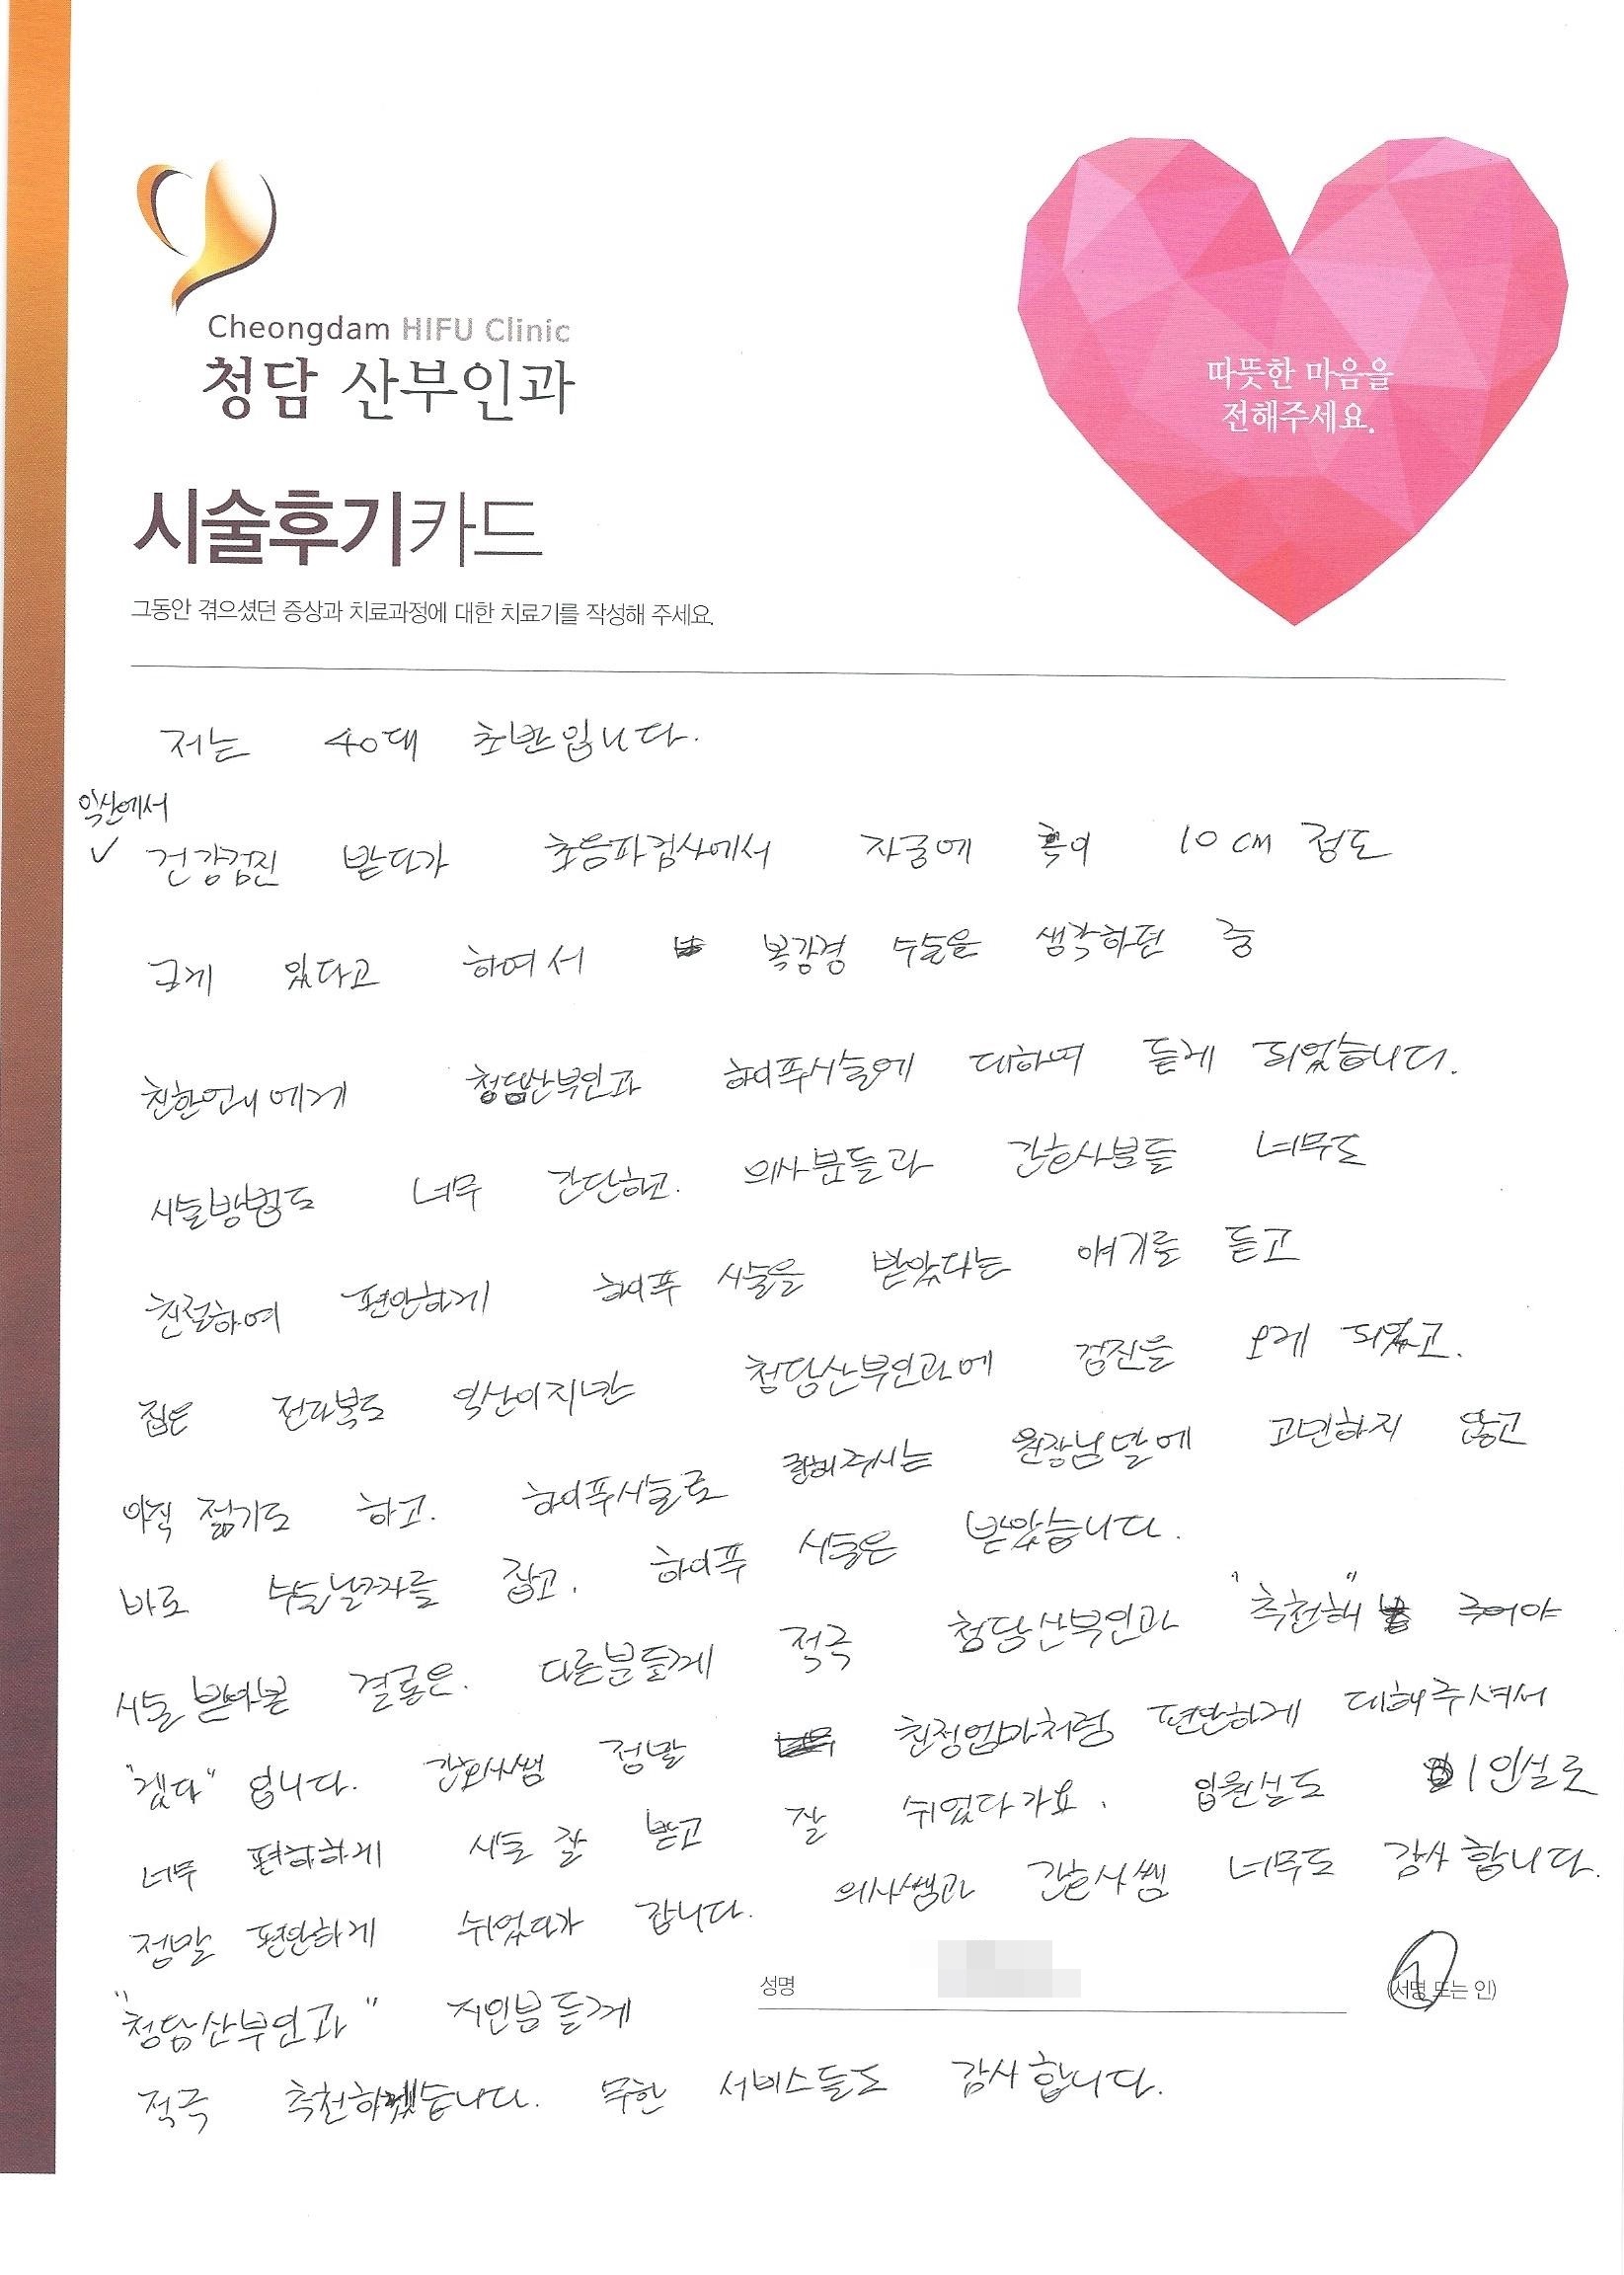 Cheongdam HIFU Clinic
청담 산부인과
따뜻한 마음을
전해주세요.
시술후기카드
그동안 겪으셨던 증상과 치료과정에 대한 치료기를 작성해 주세요.
저는 40대 초반입니다.
익산에서
✓ 건강검진 받다가 초음파검사에서 자궁에 혹이 10cm 정도
크게 있다고 하여서 복강경 수술을 생각하던 중
친한언니에게 청담산부인과 하이푸시술에 대하여 듣게 되었습니다.
시술방법도 너무 간단하고. 의사분들과 간호사분들 너무도
친절하여 편안하게 하이푸 시술을 받았다는 얘기를 듣고
집은 전라북도 익산이지만 청담산부인과에 검진을 오게 되었고.
아직 젊기도 하고. 하이푸시술로 권해주시는 원장님말에 고민하지 않고
바로 수술날짜를 잡고. 하이푸 시술은 받았습니다.
시술 받아본 결론은. 다른분들께 적극 청담산부인과 "추천해" 주어야
"겠다" 입니다. 간호사쌤 정말 친정엄마처럼 편안하게 대해주셔서
너무 편하하게 시술 잘 받고 잘 쉬었다가요. 입원실도 1인실로
정말 편안하게 쉬었다가 갑니다. 의사쌤과 간호사쌤 너무도 감사합니다.
성명 (서명 또는 인)
"청담산부인과" 지인분들께
적극 추천하겠습니다. 무한 서비스들도 감사합니다.